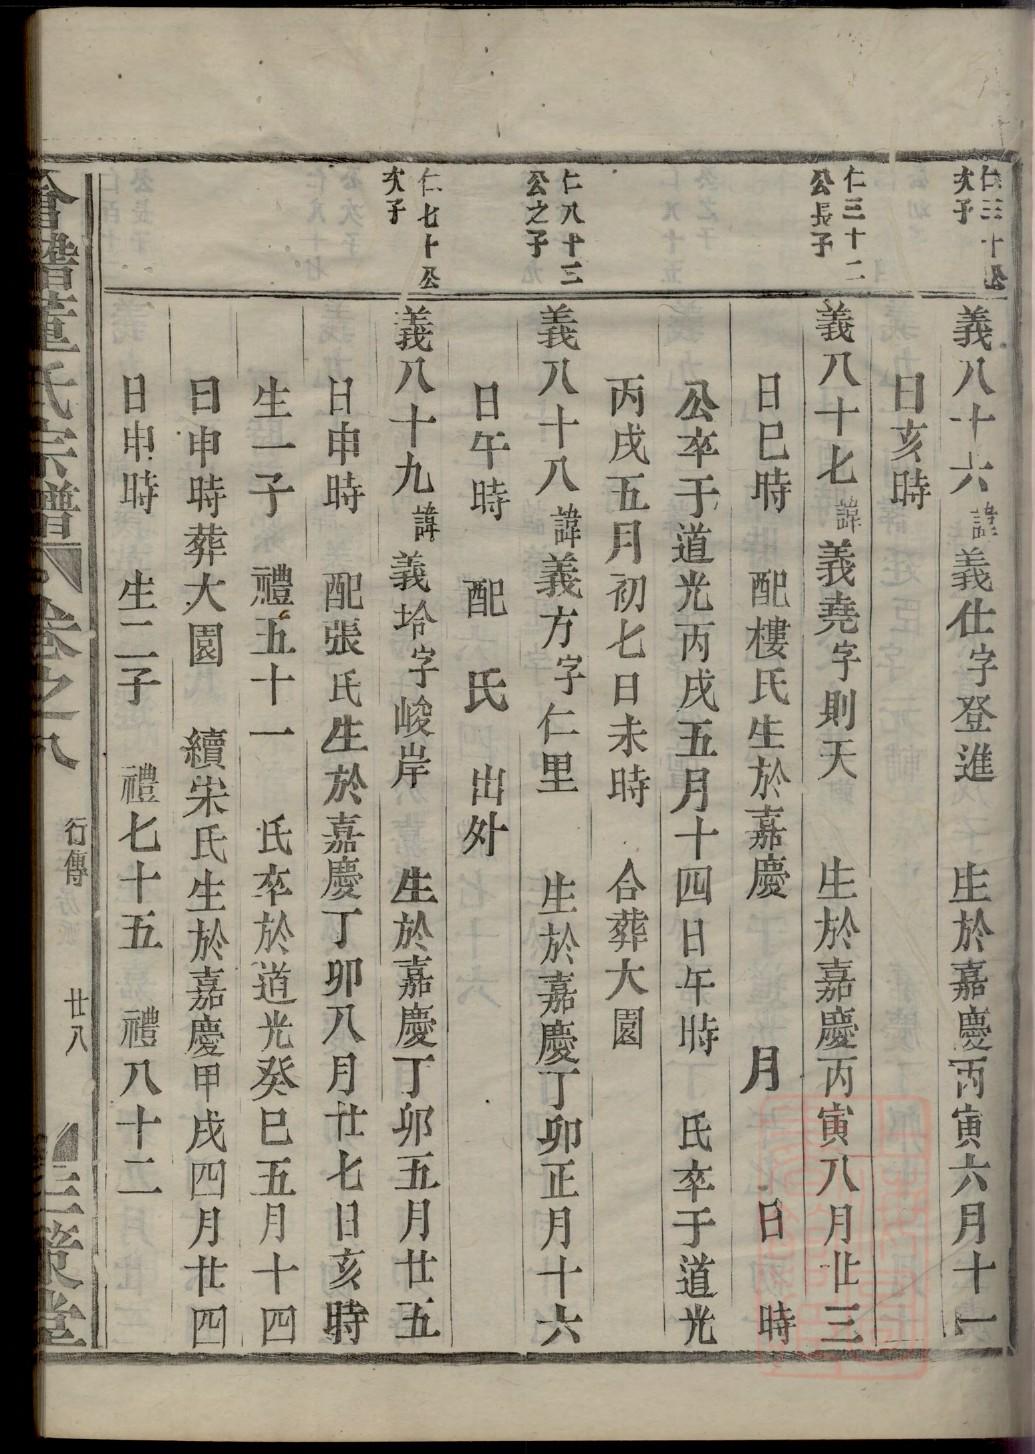 仁三十公
次子
義八十六諱義仕字登進　生於嘉慶丙寅六月十一
日亥時
仁三十二
公長子
義八十七諱義堯字則天　生於嘉慶丙寅八月廿三
日巳時　配樓氏生於嘉慶　月　日　時
公卒于道光丙戌五月十四日午時　氏卒于道光
丙戌五月初七日未時　合葬大園
仁八十三
公之子
義八十八諱義方字仁里　生於嘉慶丁卯正月十六
日午時　配　氏　出外
仁七十公
次子
義八十九諱義坽字峻岸　生於嘉慶丁卯五月廿五
日申時　配張氏生於嘉慶丁卯八月廿七日亥時
生一子　禮五十一　氏卒於道光癸巳五月十四
日申時葬大園　續宋氏生於嘉慶甲戌四月廿四
日申時　生二子　禮七十五　禮八十二
董氏宗譜　卷之八　行傳　廿八　三策堂